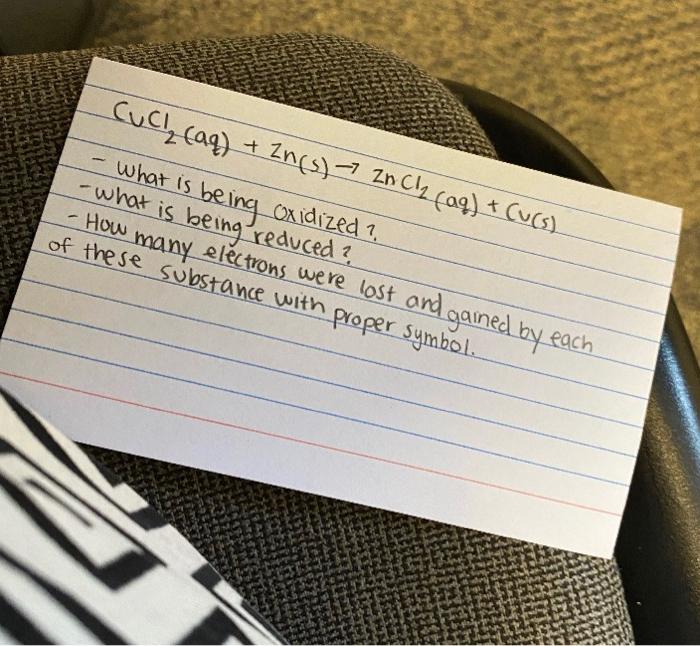 CuCl₂ (aq) + Zn(s) → ZnCl₂ (aq) + Cu(s)
- what is being oxidized?
- what is being reduced?
- How many electrons were lost and gained by each
of these substance with proper symbol.